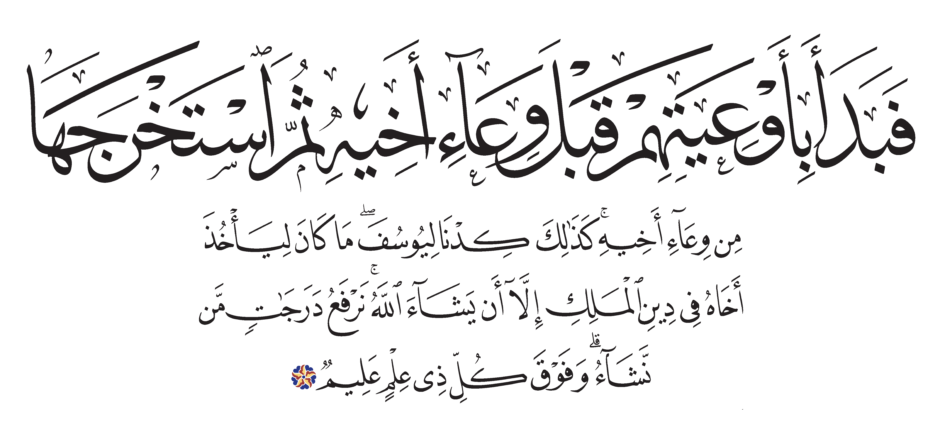 فَبَدَأَ بِأَوْعِيَتِهِمْ قَبْلَ وِعَآءِ أَخِيهِ ثُمَّ ٱسْتَخْرَجَهَا
مِن وِعَآءِ أَخِيهِ ۚ كَذَٰلِكَ كِدْنَا لِيُوسُفَ ۖ مَا كَانَ لِيَأْخُذَ
أَخَاهُ فِى دِينِ ٱلْمَلِكِ إِلَّآ أَن يَشَآءَ ٱللَّهُ ۚ نَرْفَعُ دَرَجَٰتٍ مَّن
نَّشَآءُ ۗ وَفَوْقَ كُلِّ ذِى عِلْمٍ عَلِيمٌ